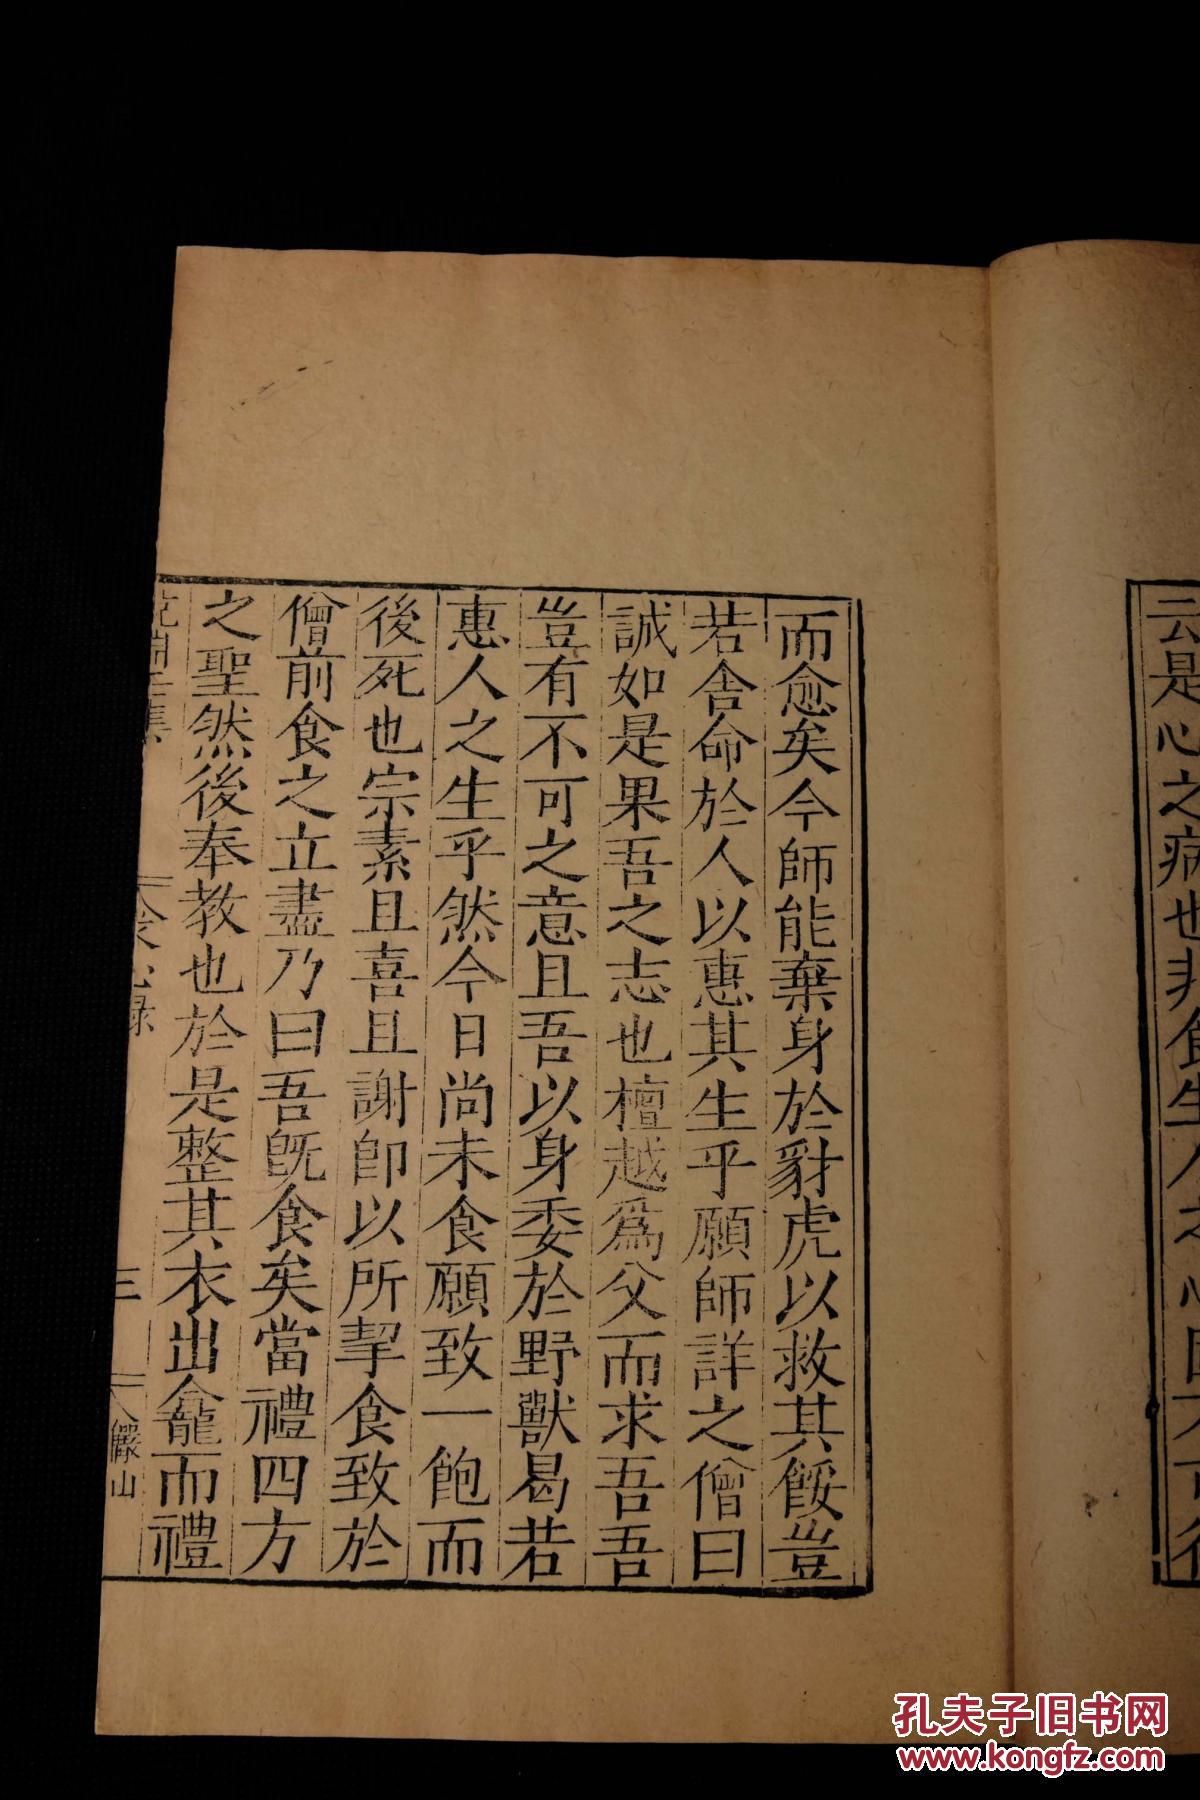 云是心之病也非食生人之心
而愈矣今師能棄身於豺虎以救其餒豈
若舍命於人以惠其生乎願師詳之僧曰
誠如是果吾之志也檀越爲父而求吾吾
豈有不可之意且吾以身委於野獸曷若
惠人之生乎然今日尚未食願致一飽而
後死也宗素且喜且謝即以所挈食致於
僧前食之立盡乃曰吾既食矣當禮四方
之聖然後奉教也於是整其衣出龕而禮
三
儼山
孔夫子旧书网
www.kongfz.com